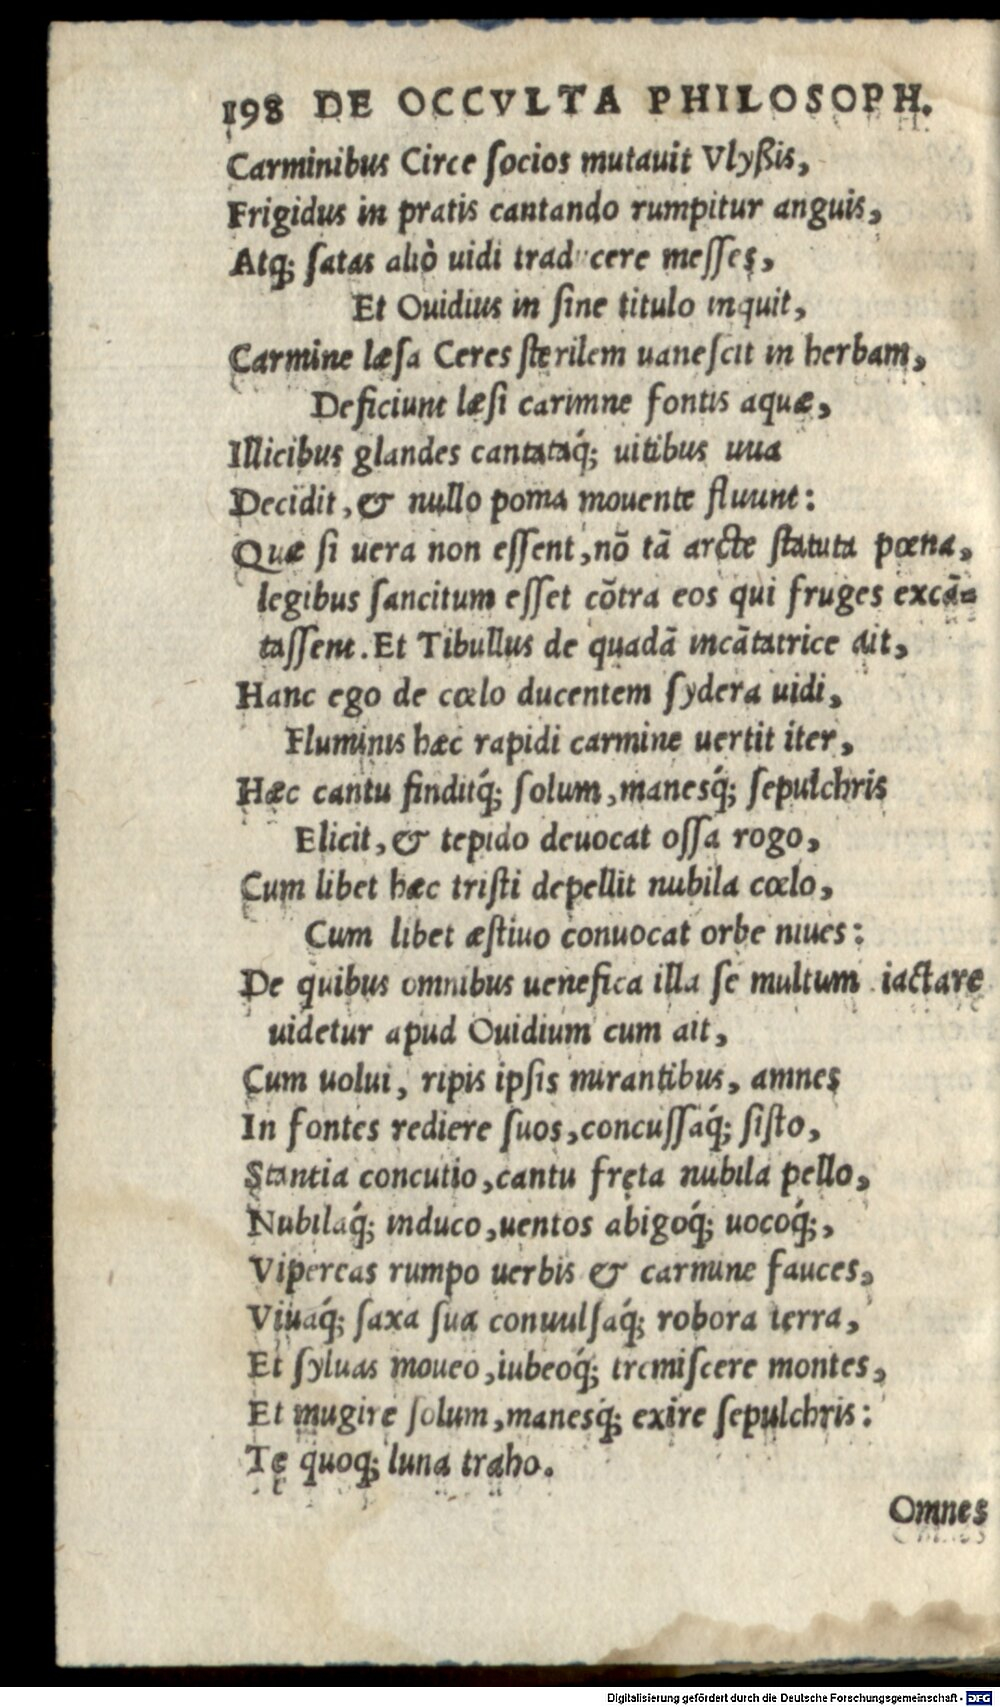 198 DE OCCVLTA PHILOSOPH.
Carminibus Circe ſocios mutauit Vlyßis,
Frigidus in pratis cantando rumpitur anguis,
Atq́; ſatas aliò uidi traducere meſſes,
Et Ouidius in ſine titulo inquit,
Carmine læſa Ceres ſterilem uaneſcit in herbam,
Deficiunt læſi carimne fontis aquæ,
Illicibus glandes cantataq́; uitibus uua
Decidit, & nullo poma mouente fluunt:
Quæ ſi uera non eſſent, nõ tã arcte ſtatuta pœna,
legibus ſancitum eſſet cõtra eos qui fruges excã=
taſſent. Et Tibullus de quadã incãtatrice ait,
Hanc ego de cœlo ducentem ſydera uidi,
Fluminis hæc rapidi carmine uertit iter,
Hæc cantu finditq́; ſolum, manesq́; ſepulchris
Elicit, & tepido deuocat oſſa rogo,
Cum libet hæc triſti depellit nubila cœlo,
Cum libet æſtiuo conuocat orbe niues:
De quibus omnibus uenefica illa ſe multum iactare
uidetur apud Ouidium cum ait,
Cum uolui, ripis ipſis mirantibus, amnes
In fontes rediere ſuos, concuſſaq́; ſiſto,
Stantia concutio, cantu freta nubila pello,
Nubilaq́; induco, uentos abigoq́; uocoq́;,
Vipereas rumpo uerbis & carmine fauces,
Viuaq́; ſaxa ſua conuulſaq́; robora terra,
Et ſyluas moueo, iubeoq́; tremiſcere montes,
Et mugire ſolum, manesq́; exire ſepulchris:
Te quoq; luna traho.
Omnes
Digitalisierung gefördert durch die Deutsche Forschungsgemeinschaft - DFG